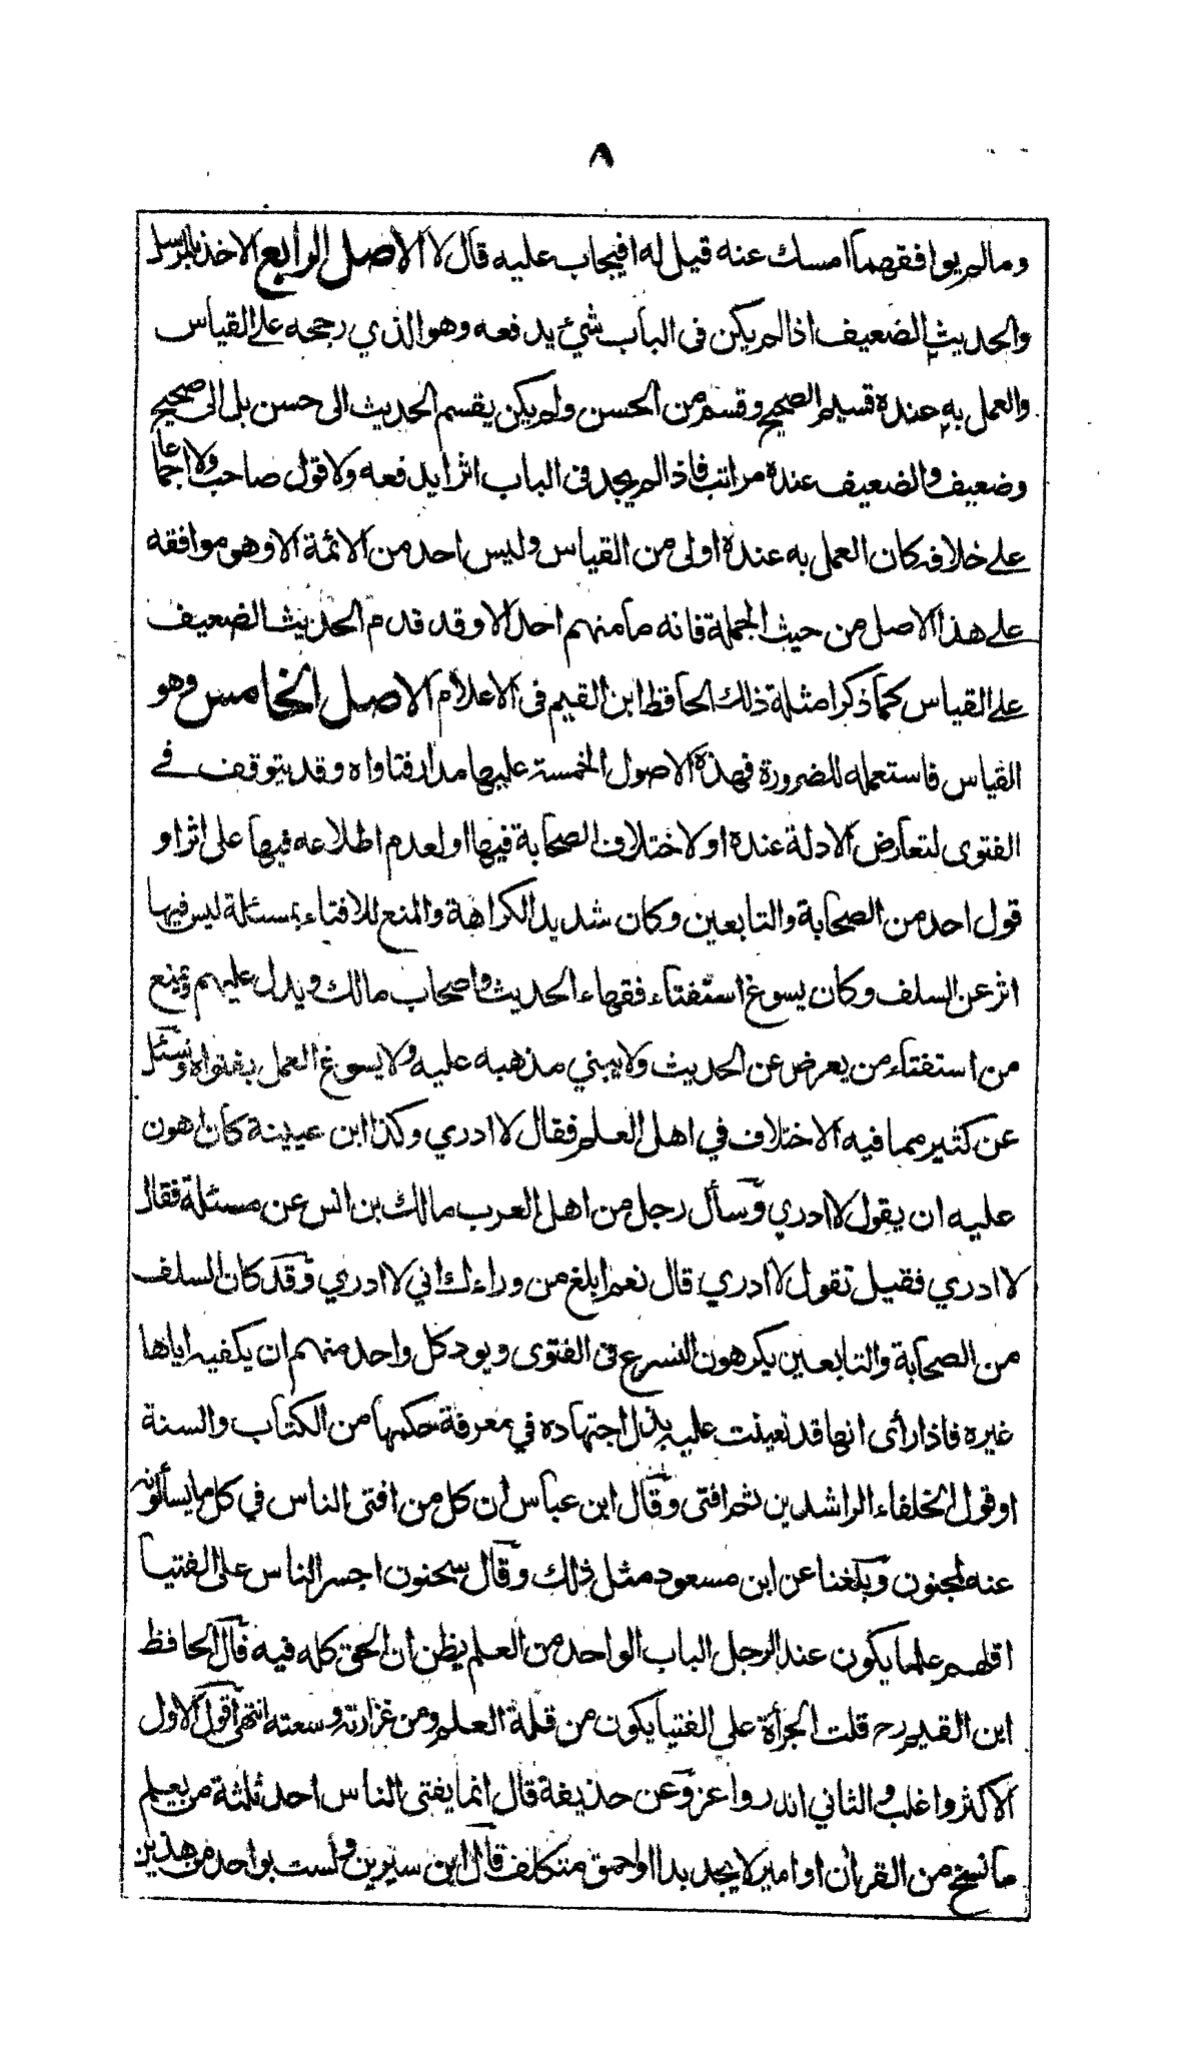 ٨
ومالم يوافقهما امسك عنه قيل له افيجاب عليه قال لا الاصل الرابع الاخذ بالمرسل
والحديث الضعيف اذا لم يكن فى الباب شئ يدفعه وهو الذي رجحه على القياس
والعمل به عنده قسيم الصحيح وقسم من الحسن ولم يكن يقسم الحديث الى حسن بل الى صحيح
وضعيف والضعيف عنده مراتب فاذا لم يجد فى الباب اثرا يدفعه ولا قول صاحب ولا اجماعا
على خلافه كان العمل به عنده اولى من القياس وليس احد من الائمة الا وهو موافقه
على هذا الاصل من حيث الجملة فانه ما منهم احد الا وقد قدم الحديث الضعيف
على القياس كما ذكر امثلة ذلك الحافظ ابن القيم فى الاعلام الاصل الخامس وهو
القياس فاستعمله للضرورة فهذه الاصول الخمسة عليها مدار فتاواه وقد يتوقف في
الفتوى لتعارض الادلة عنده او لاختلاف الصحابة فيها او لعدم اطلاعه فيها على اثر او
قول احد من الصحابة والتابعين وكان شديد الكراهة والمنع للافتاء بمسئلة ليس فيها
اثر عن السلف وكان يسوغ استفتاء فقهاء الحديث واصحاب مالك ويدل عليهم ويمنع
من استفتاء من يعرض عن الحديث ولا يبني مذهبه عليه ولا يسوغ العمل بفتواه وسئل
عن كثير مما فيه الاختلاف في اهل العلم فقال لا ادري وكذا ابن عيينة كان اهون
عليه ان يقول لا ادري وسأل رجل من اهل العرب مالك بن انس عن مسئلة فقال
لا ادري فقيل تقول لا ادري قال نعم ابلغ من وراءك اني لا ادري وقد كان السلف
من الصحابة والتابعين يكرهون التسرع فى الفتوى ويود كل واحد منهم ان يكفيه اياها
غيره فاذا رأى انها قد تعينت عليه بذل اجتهاده في معرفة حكمها من الكتاب والسنة
او قول الخلفاء الراشدين ثم افتى وقال ابن عباس ان كل من افتى الناس في كل ما يسألونه
عنه لمجنون وبلغنا عن ابن مسعود مثل ذلك وقال سحنون اجسر الناس على الفتيا
اقلهم علما يكون عند الرجل الباب الواحد من العلم يظن ان الحق كله فيه قال الحافظ
ابن القيم رح قلت الجرأة على الفتيا يكون من قلة العلم ومن غزارته وسعته انتهى اقول الاول
الاكثر واغلب والثاني اندر واعز وعن حذيفة قال انما يفتى الناس احد ثلثة من يعلم
ما نسخ من القرأن او امير لا يجد بدا او احمق متكلف قال ابن سيرين ولست بواحد من هذين